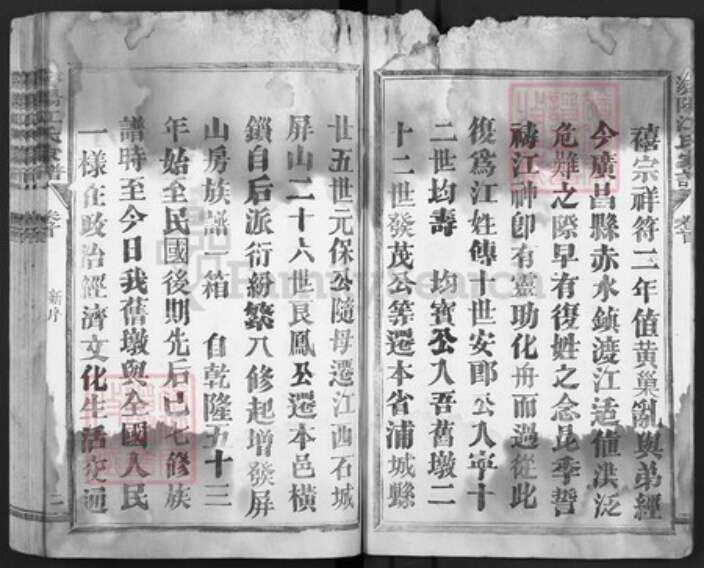 禧宗祥符三年值黄巢亂與弟經
今廣昌縣赤水鎮渡江适值洪泛
危難之際早有復姓之念昆季誓
禱江神卽有靈助化舟而過從此
復爲江姓傳十世安郎公入寧十
二世均壽 均寳公入吾舊墩二
十二世發茂公等遷本省浦城縣
廿五世元保公隨母遷江西石城
屏山二十六世良鳳公遷本邑橫
鎖自后派衍紛繁八修起增發屏
山房族譜一箱 自乾隆五十三
年始至民國後期先后已七修族
譜時至今日我舊墩與全國人民
一樣在政治經濟文化生活交通
新序
二